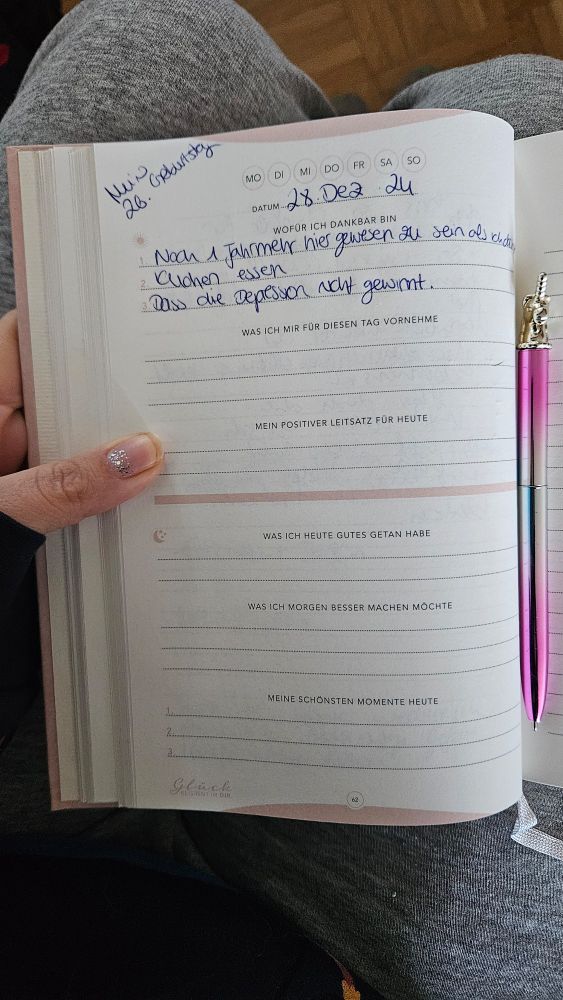 Mein
28. Geburtstag
MO DI MI DO FR SA SO
DATUM 28. Dez. 24
WOFÜR ICH DANKBAR BIN
1. Noch 1 Jahr mehr hier gewesen zu sein als ich
2. Kuchen essen
3. Dass die Depression nicht gewinnt.
WAS ICH MIR FÜR DIESEN TAG VORNEHME
MEIN POSITIVER LEITSATZ FÜR HEUTE
WAS ICH HEUTE GUTES GETAN HABE
WAS ICH MORGEN BESSER MACHEN MÖCHTE
MEINE SCHÖNSTEN MOMENTE HEUTE
1.
2.
3.
Glück
BEGINNT IN DIR
62